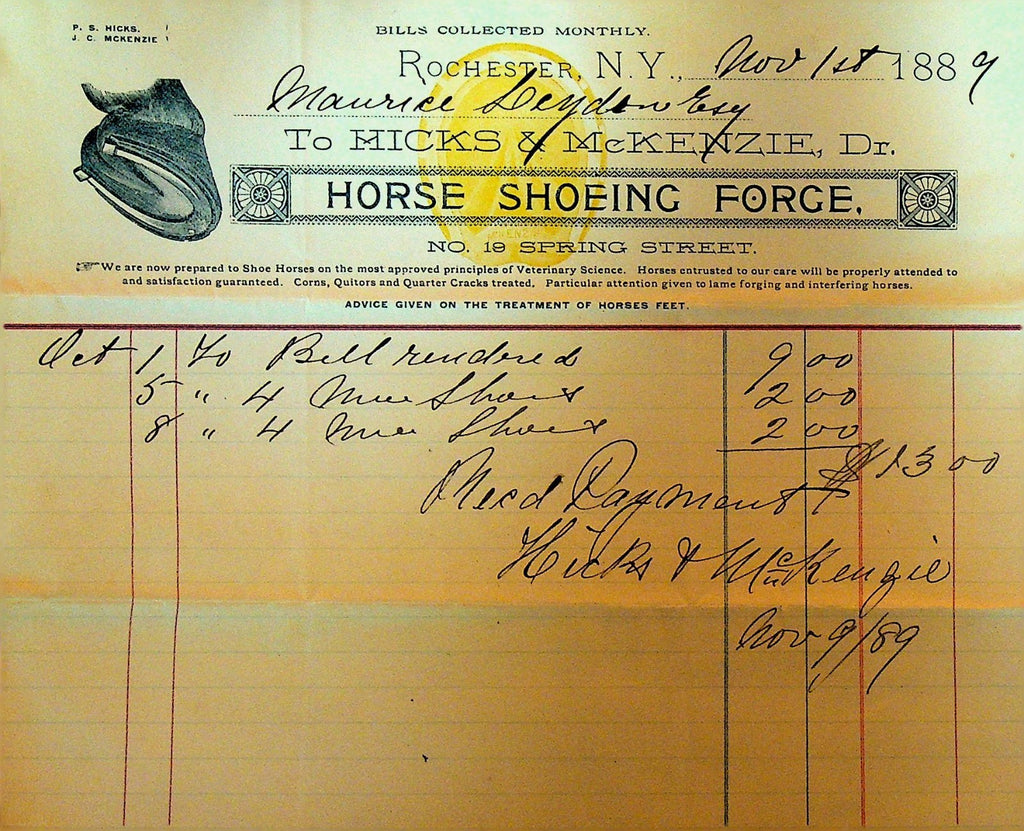 P. S. HICKS.
J. C. MCKENZIE
BILLS COLLECTED MONTHLY.
ROCHESTER, N.Y., Nov 1st 1889
Maurice Leydon Esq
To HICKS & McKENZIE, Dr.
HORSE SHOEING FORGE.
NO. 19 SPRING STREET.
We are now prepared to Shoe Horses on the most approved principles of Veterinary Science. Horses entrusted to our care will be properly attended to
and satisfaction guaranteed. Corns, Quitors and Quarter Cracks treated. Particular attention given to lame forging and interfering horses.
ADVICE GIVEN ON THE TREATMENT OF HORSES FEET.
Oct 1 To Bill rendered 9 00
5 " 4 New Shoes 2 00
8 " 4 New Shoes 2 00
$13 00
Recd Payment
Hicks & McKenzie
Nov 9/89